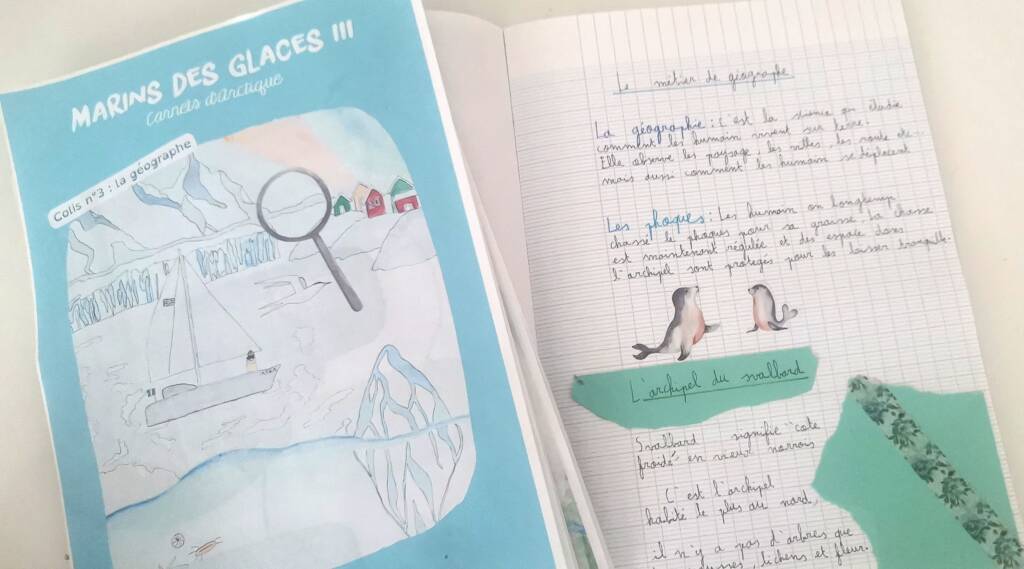 MARINS DES GLACES III
Carnets d'Arctique
Colis n°3 : la géographe
Le métier de géographe
La géographie : C'est la science qui étudie
comment les humain vivent sur terre.
Elle observe les paysage, les villes, les route etc...
mais aussi comment les humain se déplacent
Les phoques : Les humain on longtemp
chassé le phoques pour sa graisse. La chasse
est maintenant régulée et des espace dans
l'archipel sont protegés pour les laisser tranquille.
L'archipel du svalbard
Svalbard signifie "cote
froide" en vieux norrois
C'est l'archipel
habité le plus au nord,
il n'y a pas d'arbres que
mousses, lichens et fleur.